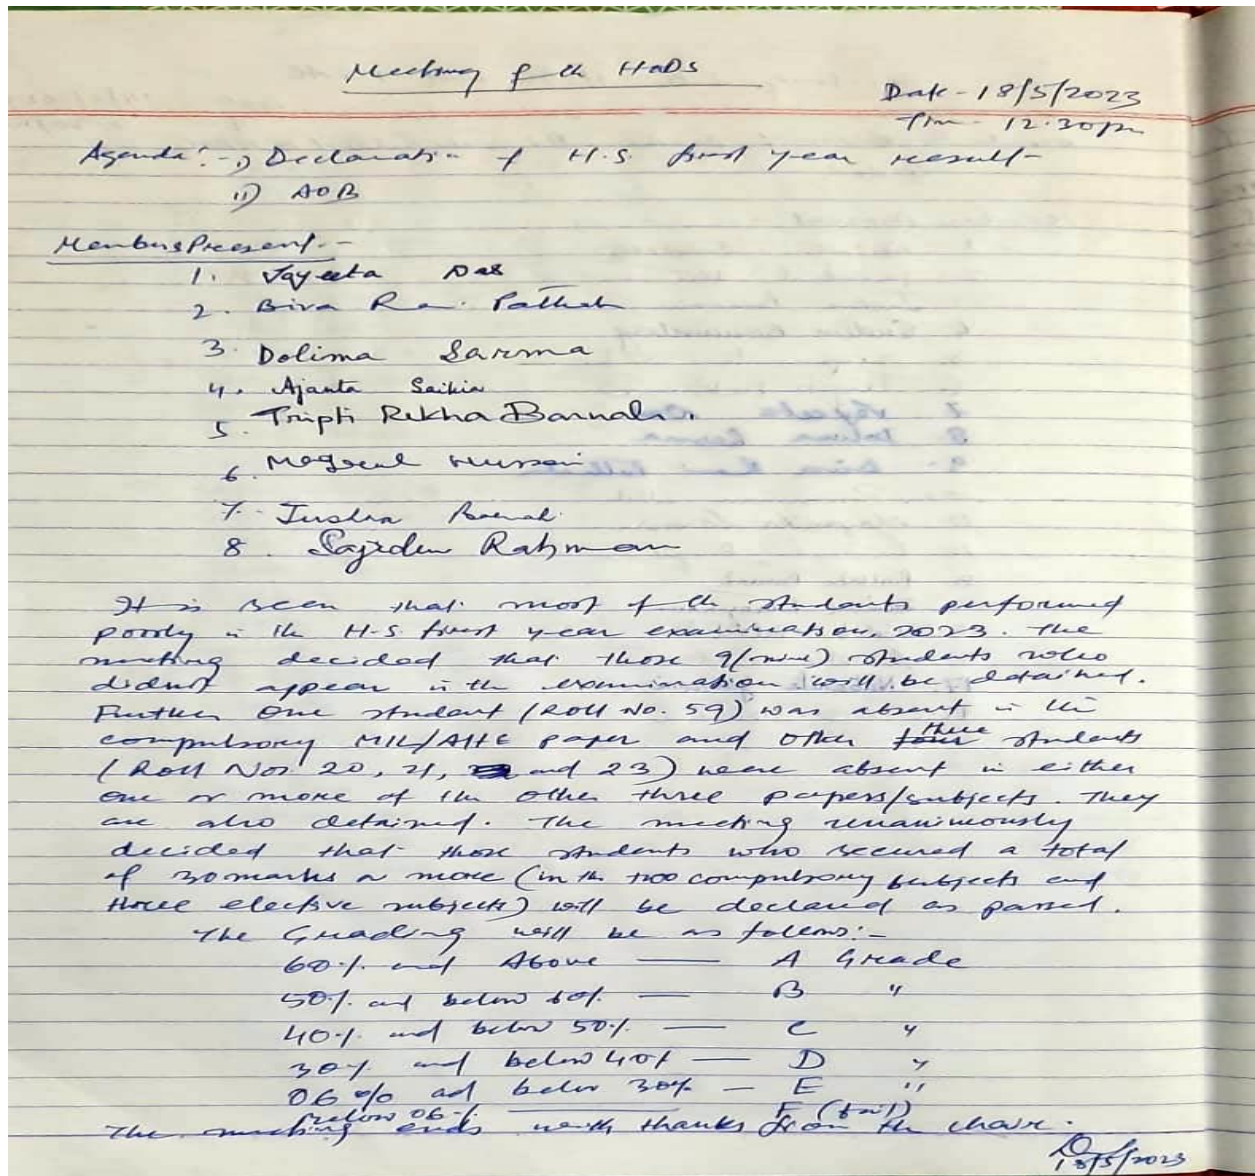 Meeting of the HODs
Date - 18/5/2023
Time - 12.30pm
Agenda :- i) Declaration of H.S. first year result -
ii) AOB
Members Present :-
1. Jayeeta Das
2. Biva Rani Pathak
3. Dolima Sarma
4. Ajanta Saikia
5. Tripti Rekha Baruah.
6. Hussain
7. Indira Baruah.
8. Rahman
It is seen that most of the students performed
poorly in the H.S. first year examination, 2023. The
meeting decided that those 9(nine) students who
didnot appear in the examination will be detained.
Further One student (Roll No. 59) was absent in the
compulsory MIL/AHE paper and other three students
(Roll Nos. 20, 21, and 23) were absent in either
one or more of the other three papers/subjects. They
are also detained. The meeting unanimously
decided that those students who secured a total
of 30 marks or more (in the two compulsory subjects and
three elective subjects) will be declared as passed.
The Grading will be as follows:-
60% and Above — A Grade
50% and below 60% — B "
40% and below 50% — C "
30% and below 40% — D "
06% and below 30% — E "
below 06% — F (fail)
The meeting ends with thanks from the chair.
18/5/2023